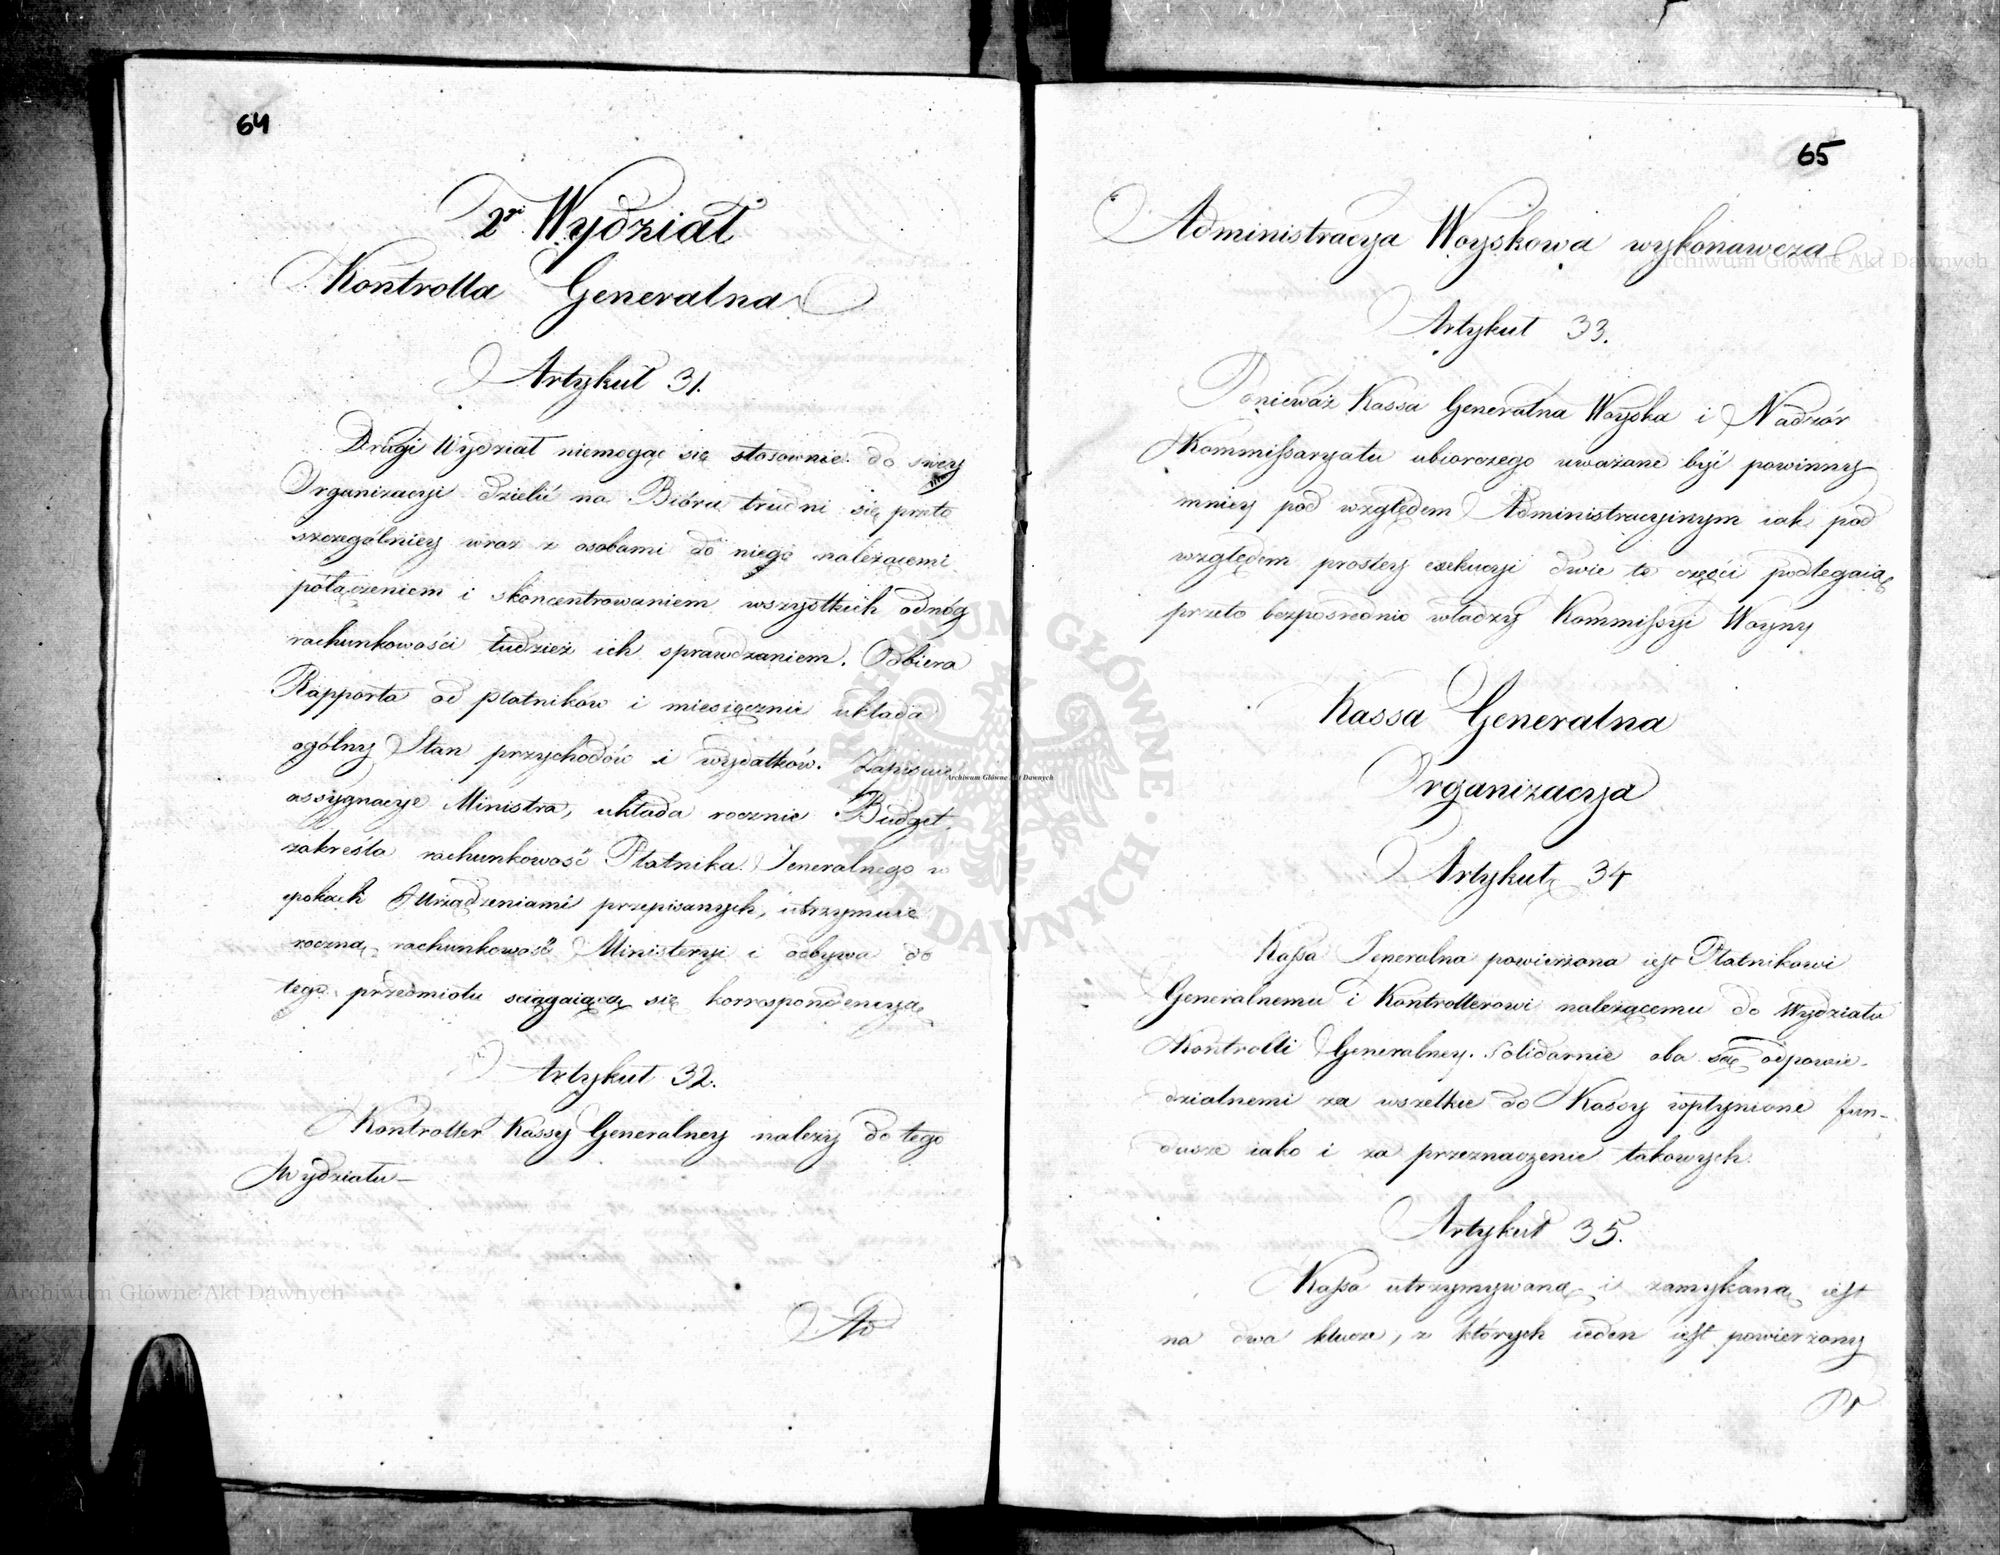 64
2r Wydział
Kontrolla Generalna
Artykuł 31.
Drugi Wydział niemogąc się stosownie do swey
Organizacyi dzielić na Bióra trudni się przeto
szczególniey wraz z osobami do niego należącemi
połączeniem i skoncentrowaniem wszystkich odnóg
rachunkowości tudzież ich sprawdzaniem. Odbiera
Rapporta od płatników i miesięcznie układa
ogólny Stan przychodów i wydatków. Zapisuie
assygnacye Ministra, układa rocznie Budget,
zakreśla rachunkowość Płatnika Jeneralnego w
epokach Urządzeniami przepisanych, utrzymuie
roczną rachunkowość Ministeryi i odbywa do
tego przedmiotu sciągaiącą się korrespondencyą
Artykuł 32.
Kontroller Kassy Generalney należy do tego
Wydziału —
Ad
65
Administracya Woyskowa wykonawcza
Artykuł 33.
Ponieważ Kassa Generalna Woyska i Nadzór
Kommissaryatu ubiorczego uważane być powinny
mniey pod względem Administracyinym iak pod
względem prostey exekucyi dwie te części podlegaią
przeto bezpośrednio władzy Kommissyi Woyny
Kassa Generalna
Organizacya
Artykuł 34
Kassa Jeneralna powierzona iest Płatnikowi
Generalnemu i Kontrollerowi należącemu do Wydziału
Kontrolli Generalney. Solidarnie oba są odpowie-
dzialnemi za wszelkie do Kassy wpłynione fun-
dusze iako i za przeznaczenie takowych.
Artykuł 35.
Kassa utrzymywaną i zamykaną iest
na dwa klucze, z których ieden iest powierzony
Pł
Archiwum Główne Akt Dawnych
Archiwum Główne Akt Dawnych
Archiwum Główne Akt Dawnych
ARCHIWUM GŁÓWNE AKT DAWNYCH